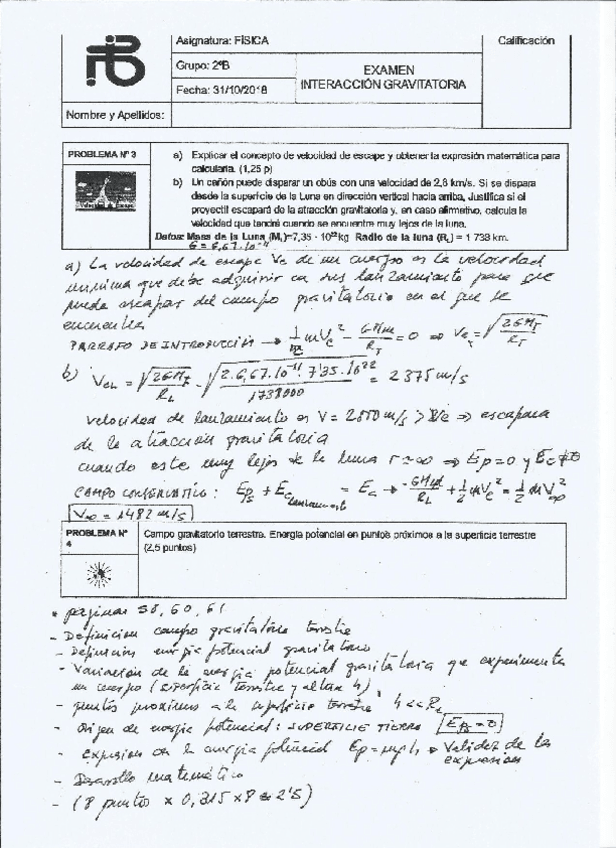 Asignatura: FÍSICA
Calificación
Grupo: 2ºB
EXAMEN
INTERACCIÓN GRAVITATORIA
Fecha: 31/10/2018
Nombre y Apellidos:
PROBLEMA Nº 3
a) Explicar el concepto de velocidad de escape y obtener la expresión matemática para
calcularla. (1,25 p)
b) Un cañón puede disparar un obús con una velocidad de 2,8 km/s. Si se dispara
desde la superficie de la Luna en dirección vertical hacia arriba, Justifica si el
proyectil escapará de la atracción gravitatoria y, en caso afirmativo, calcula la
velocidad que tendrá cuando se encuentre muy lejos de la luna.
Datos: Masa de la Luna (M_L)=7,35 · 10²²kg Radio de la luna (R_L) = 1 738 km.
G = 6,67·10⁻¹¹
a) La velocidad de escape Ve de un cuerpo es la velocidad
minima que debe adquirir en su lanzamiento para que
pueda escapar del campo gravitatorio en el que se
encuentra
PARRAFO DE INTRODUCCIÓN → 1/2 mVe² - GMm/R_T = 0 ⇒ Ve = √(2GM_T/R_T)
b) Ve = √(2GM/R_L) √(2·6,67·10⁻¹¹·7'35·10²²/1738000) = 2375 m/s
velocidad de lanzamiento es V = m/s > Ve ⇒ escapara
de la atracción gravitatoria
cuando este muy lejos de la luna r≈∞ ⇒ Ep=0 y Ec≠0
CAMPO CONSERVATIVO: Ep + Ec lanzamiento = Ec → -GMm/R_L + 1/2 mVe² = 1/2 mV∞²
V∞ = 1482 m/s
PROBLEMA Nº
4
Campo gravitatorio terrestre. Energía potencial en puntos próximos a la superficie terrestre
(2,5 puntos)
paginas 58, 60, 61
- Definicion campo gravitatorio terrestre
- Definicion energia potencial gravitatorio
- Variación de la energia potencial gravitatoria que experimenta
un cuerpo (superficie terrestre y altura h)
- puntos proximos a la superficie terrestre h << R_T
- Origen de energia potencial: SUPERFICIE TIERRA Ep=0
- expresion de la energia potencial Ep = mgh, Validez de la
expresion
- Desarrollo matemático
- (8 puntos x 0,315 x 8 = 2'5)